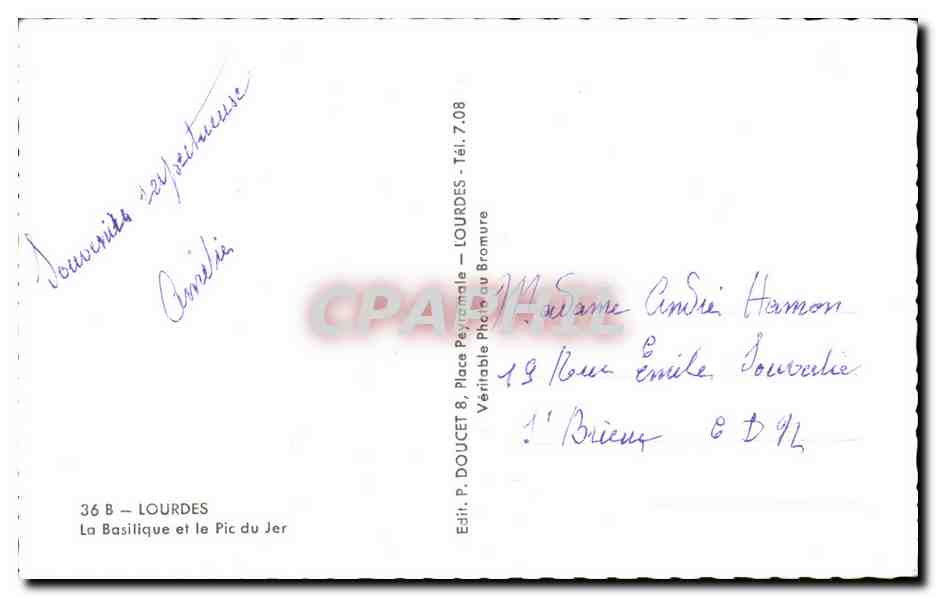 Souvenirs respectueuse
Amélie
36 B — LOURDES
La Basilique et le Pic du Jer
Edit. P. DOUCET 8, Place Peyramale — LOURDES - Tél. 7.08
Véritable Photo au Bromure
CPAPHIL
Madame André Hamon
19 Rue Emile
St Brieuc C D N